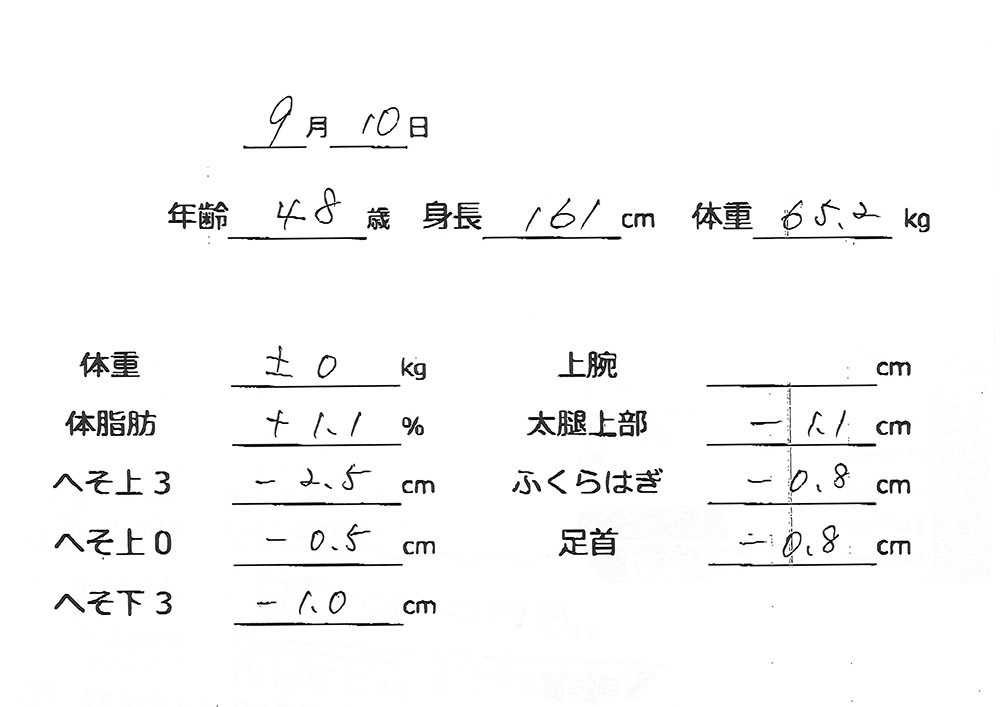 9月10日
年齢 48 歳 身長 161 cm 体重 65.2 kg
体重 ±0 kg
体脂肪 +1.1 %
へそ上3 -2.5 cm
へそ上0 -0.5 cm
へそ下3 -1.0 cm
上腕 cm
太腿上部 -1.1 cm
ふくらはぎ -0.8 cm
足首 -0.8 cm